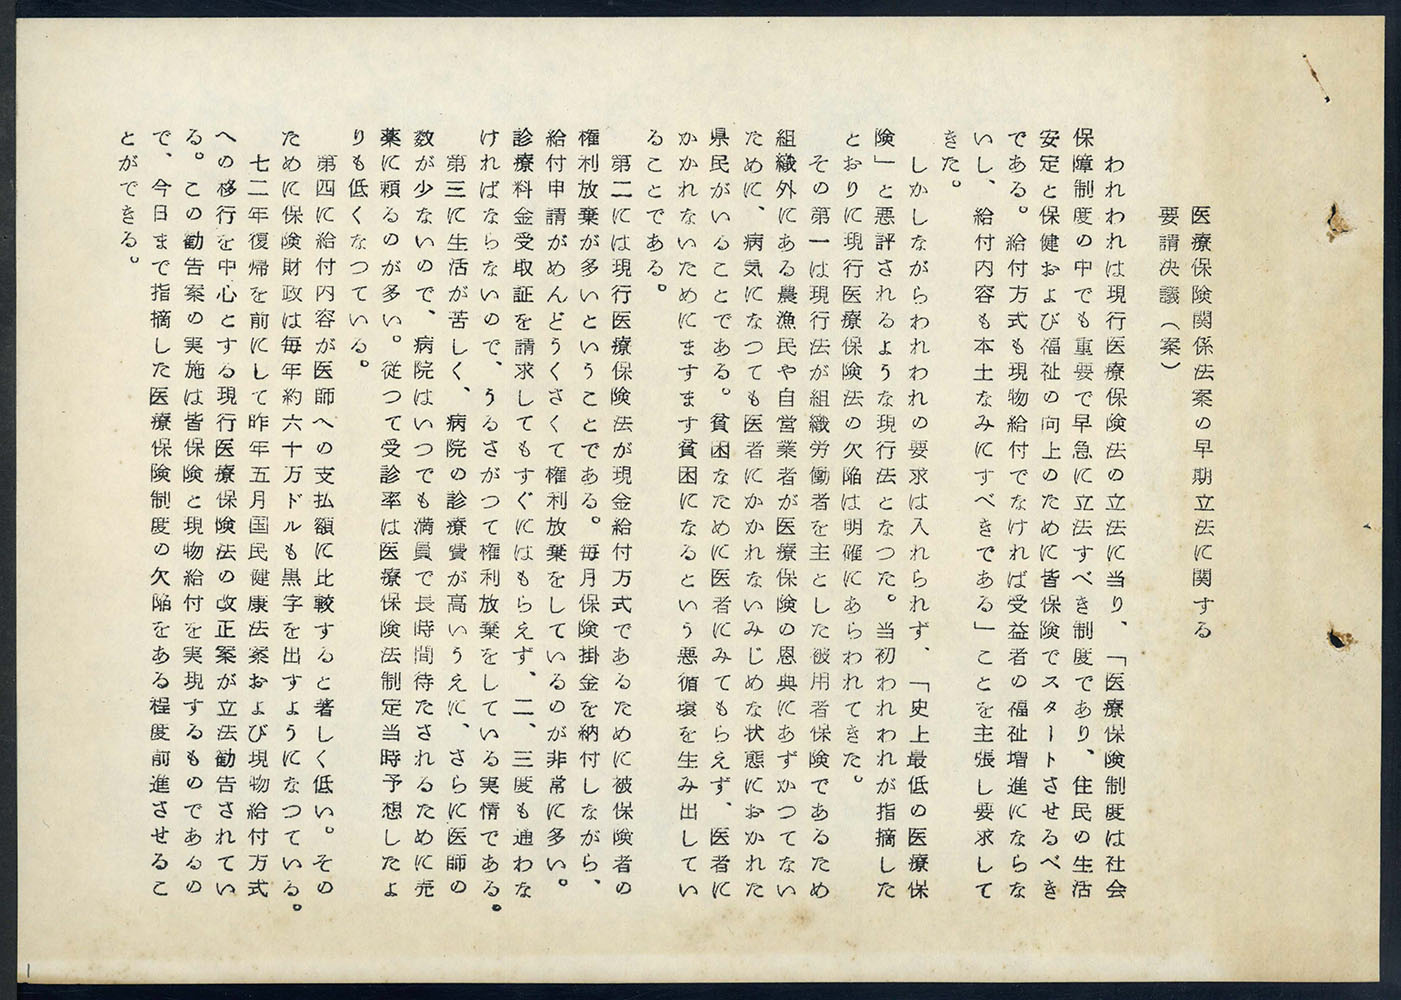 医療保険関係法案の早期立法に関する
要請決議（案）
われわれは現行医療保険法の立法に当り、「医療保険制度は社会
保障制度の中でも重要で早急に立法すべき制度であり、住民の生活
安定と保健および福祉の向上のために皆保険でスタートさせるべき
である。給付方式も現物給付でなければ受益者の福祉増進にならな
いし、給付内容も本土なみにすべきである」ことを主張し要求して
きた。
しかしながらわれわれの要求は入れられず、「史上最低の医療保
険」と悪評されるような現行法となつた。当初われわれが指摘した
とおりに現行医療保険法の欠陥は明確にあらわれてきた。
その第一は現行法が組織労働者を主とした被用者保険であるため
組織外にある農漁民や自営業者が医療保険の恩典にあずかつてない
ために、病気になつても医者にかかれないみじめな状態におかれた
県民がいることである。貧困なために医者にみてもらえず、医者に
かかれないためにますます貧困になるという悪循環を生み出してい
ることである。
第二には現行医療保険法が現金給付方式であるために被保険者の
権利放棄が多いということである。毎月保険掛金を納付しながら、
給付申請がめんどうくさくて権利放棄をしているのが非常に多い。
診療料金受取証を請求してもすぐにはもらえず、二、三度も通わな
ければならないので、うるさがつて権利放棄をしている実情である。
第三に生活が苦しく、病院の診療費が高いうえに、さらに医師の
数が少ないので、病院はいつでも満員で長時間待たされるために売
薬に頼るのが多い。従つて受診率は医療保険法制定当時予想したよ
りも低くなつている。
第四に給付内容が医師への支払額に比較すると著しく低い。その
ために保険財政は毎年約六十万ドルも黒字を出すようになつている。
七二年復帰を前にして昨年五月国民健康法案および現物給付方式
への移行を中心とする現行医療保険法の改正案が立法勧告されてい
る。この勧告案の実施は皆保険と現物給付を実現するものであるの
で、今日まで指摘した医療保険制度の欠陥をある程度前進させるこ
とができる。